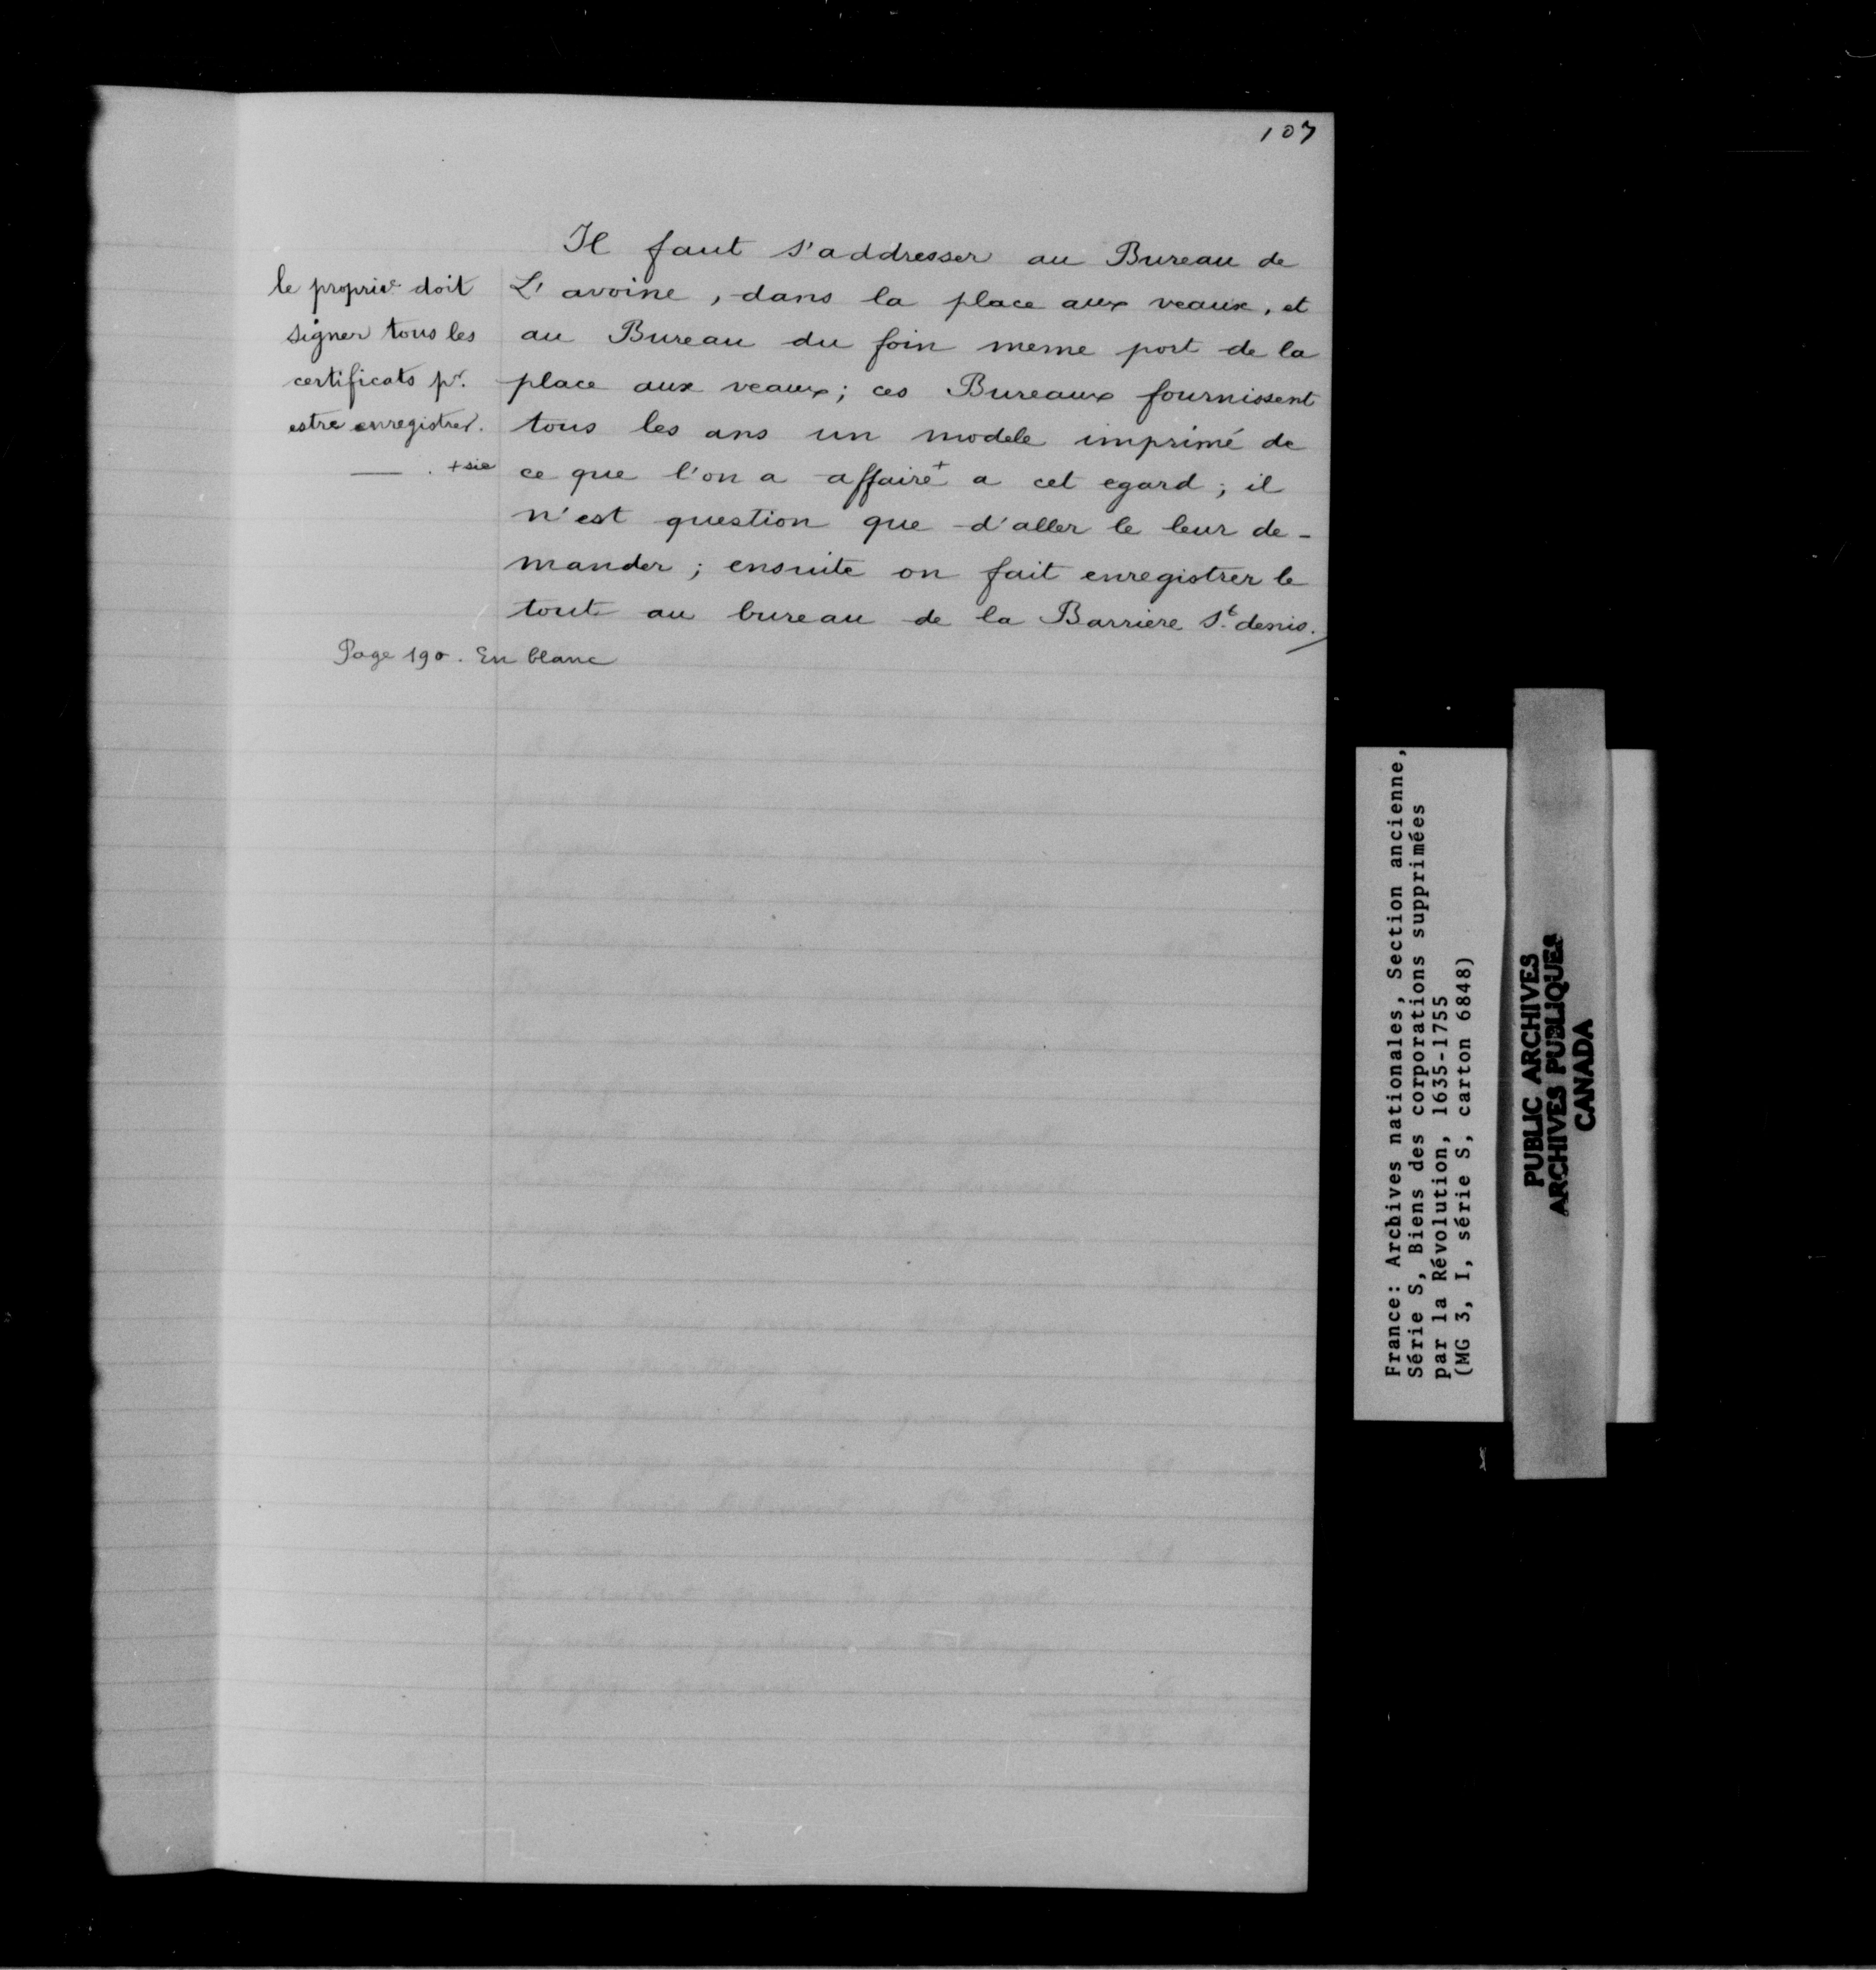 107
Il faut s'addresser au Bureau de
L'avoine, dans la place aux veaux, et
au Bureau du foin meme port de la
place aux veaux; ces Bureaux fournissent
tous les ans un modele imprimé de
ce que l'on a affaire+ a cet egard; il
n'est question que d'aller le leur de-
mander; ensuite on fait enregistrer le
tout au bureau de la Barriere St. denis.
le proprie. doit
signer tous les
certificats pr.
estre enregistrer.
+ sic
Page 190. En blanc
France: Archives nationales, Section ancienne,
Série S, Biens des corporations supprimées
par la Révolution, 1635-1755
(MG 3, I, série S, carton 6848)
PUBLIC ARCHIVES
ARCHIVES PUBLIQUES
CANADA